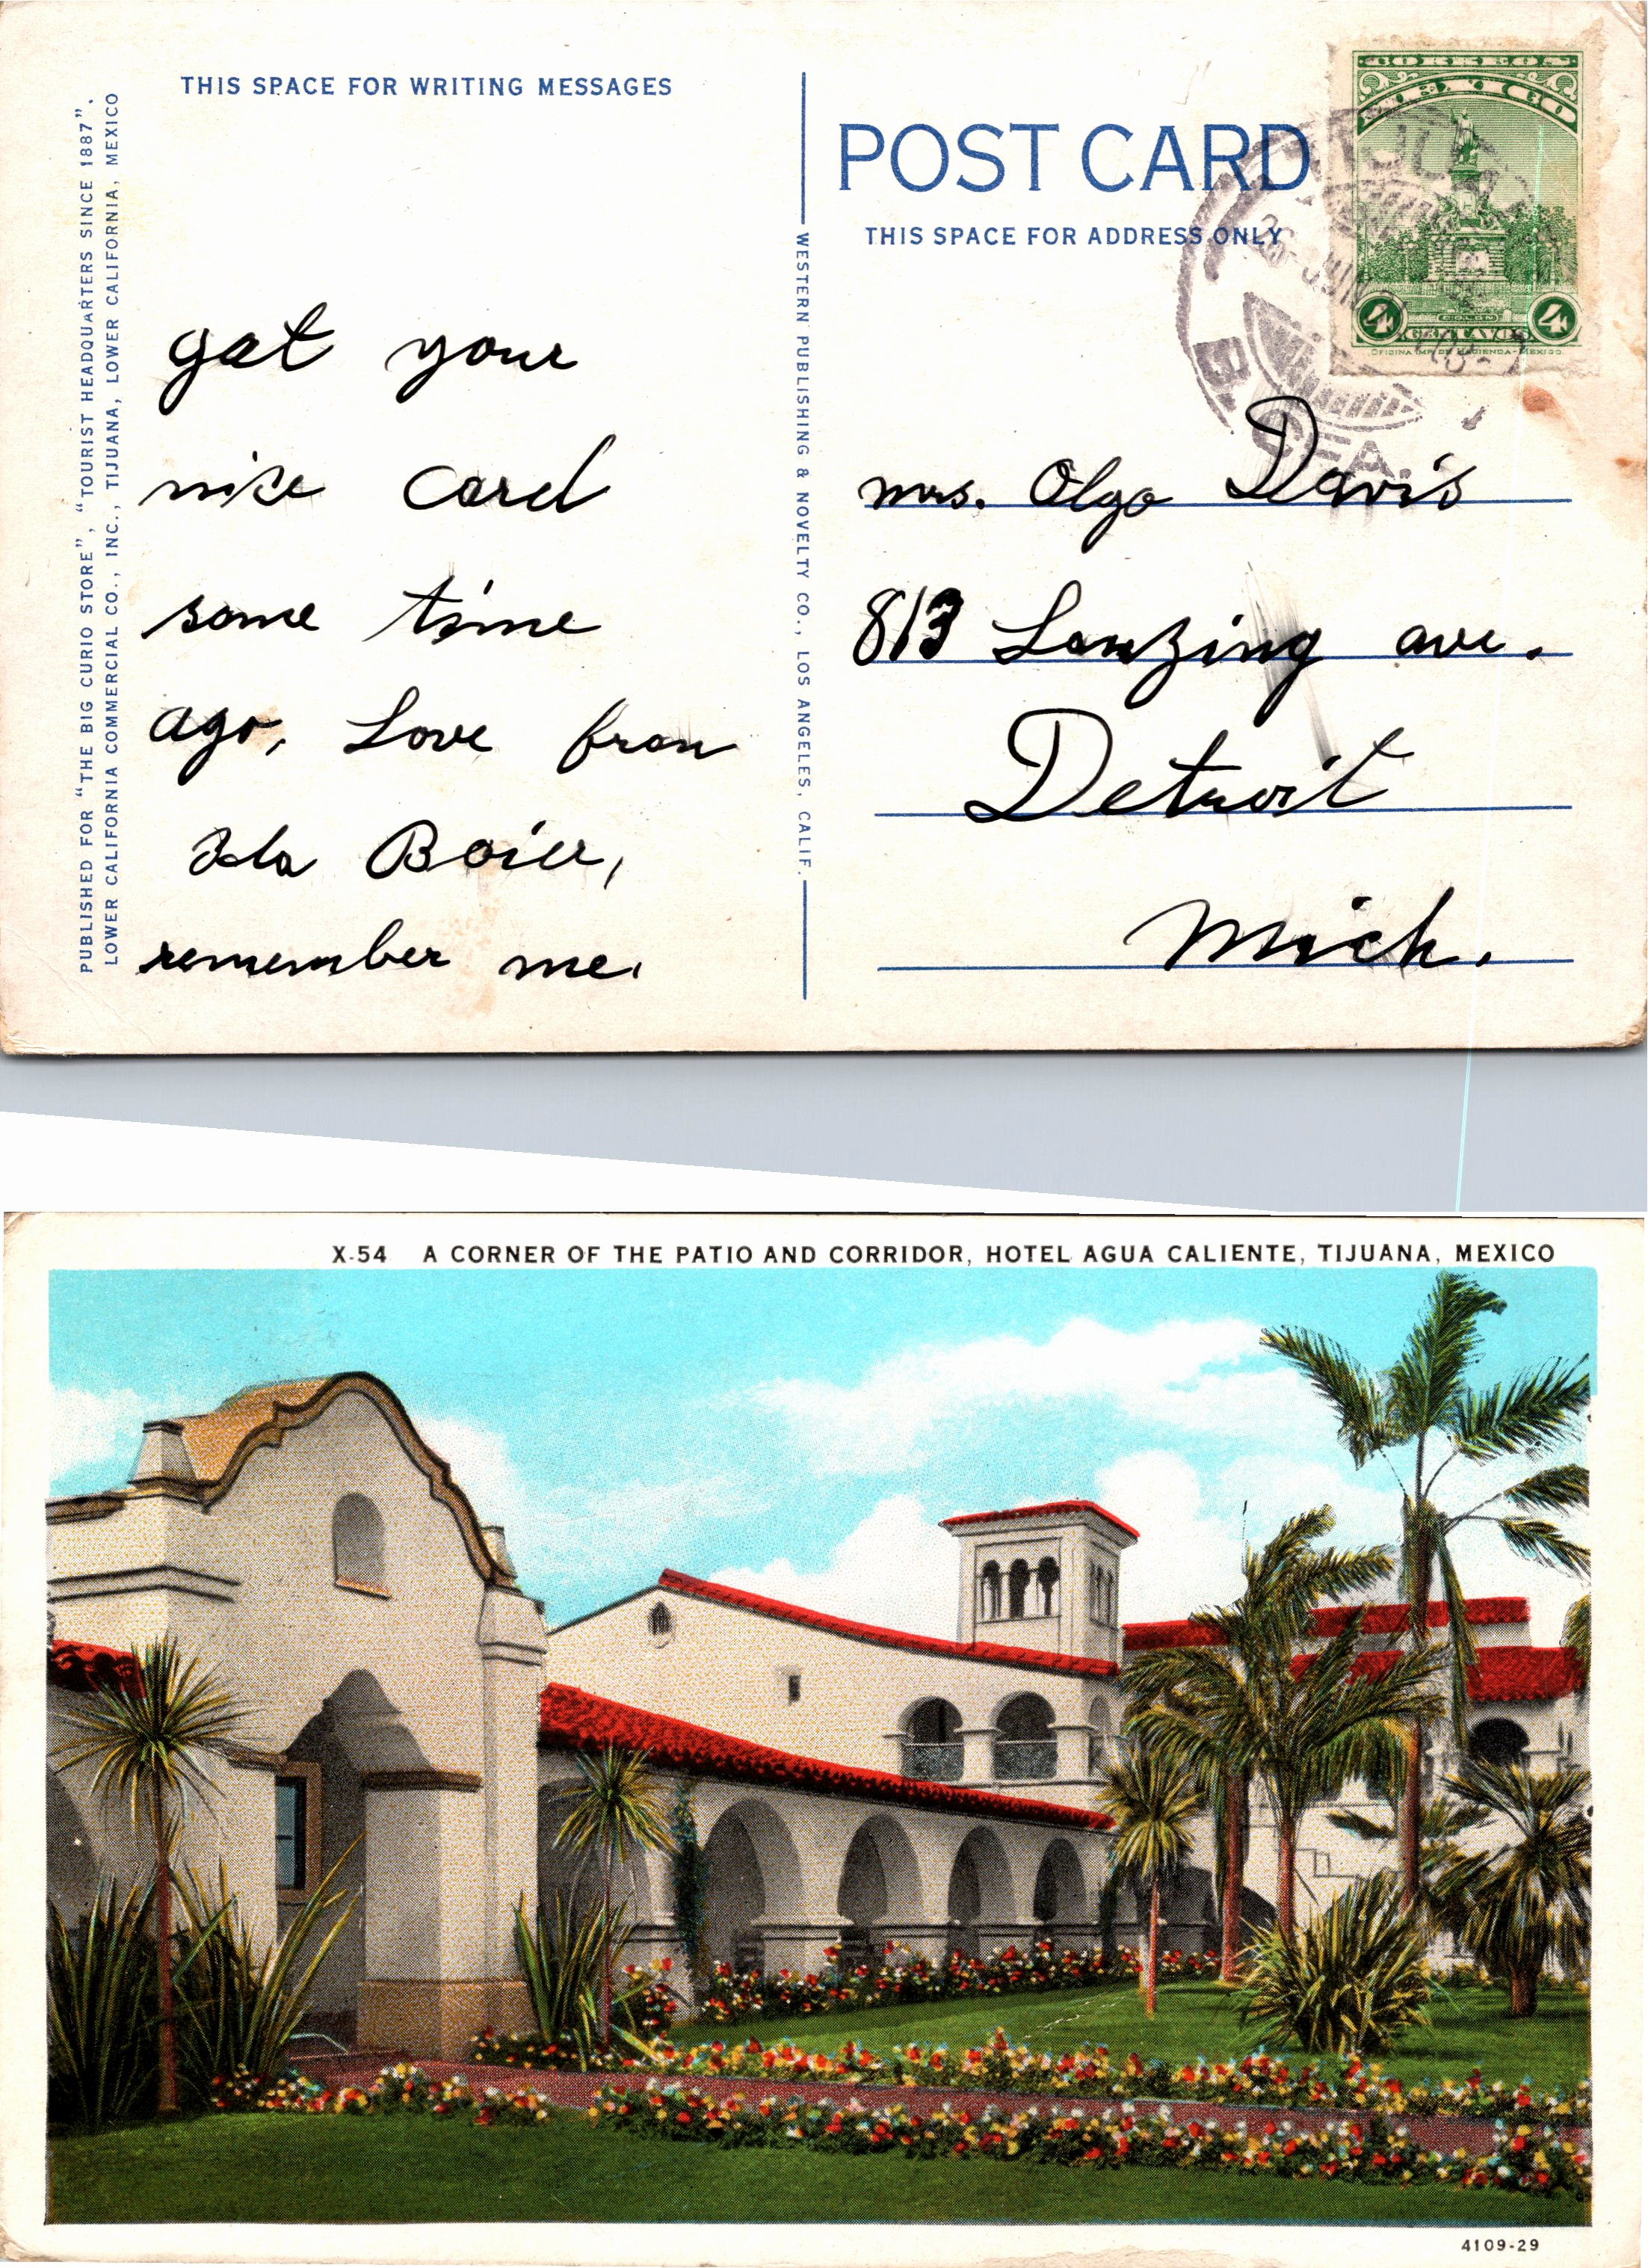 THIS SPACE FOR WRITING MESSAGES
PUBLISHED FOR "THE BIG CURIO STORE", "TOURIST HEADQUARTERS SINCE 1887".
LOWER CALIFORNIA COMMERCIAL CO., INC., TIJUANA, LOWER CALIFORNIA, MEXICO
gat your
nise card
some time
ago, Love from
Ida Boier,
remember me.
WESTERN PUBLISHING & NOVELTY CO., LOS ANGELES, CALIF.
POST CARD
THIS SPACE FOR ADDRESS ONLY
CORREOS
MEXICO
4 4
COLON
CENTAVOS
OFICINA IMP. DE HACIENDA-MEXICO
26 JUN
B. CFA.
mrs. Olga Davis
813 Lanzing ave.
Detroit
Mich.
X-54 A CORNER OF THE PATIO AND CORRIDOR, HOTEL AGUA CALIENTE, TIJUANA, MEXICO
4109-29